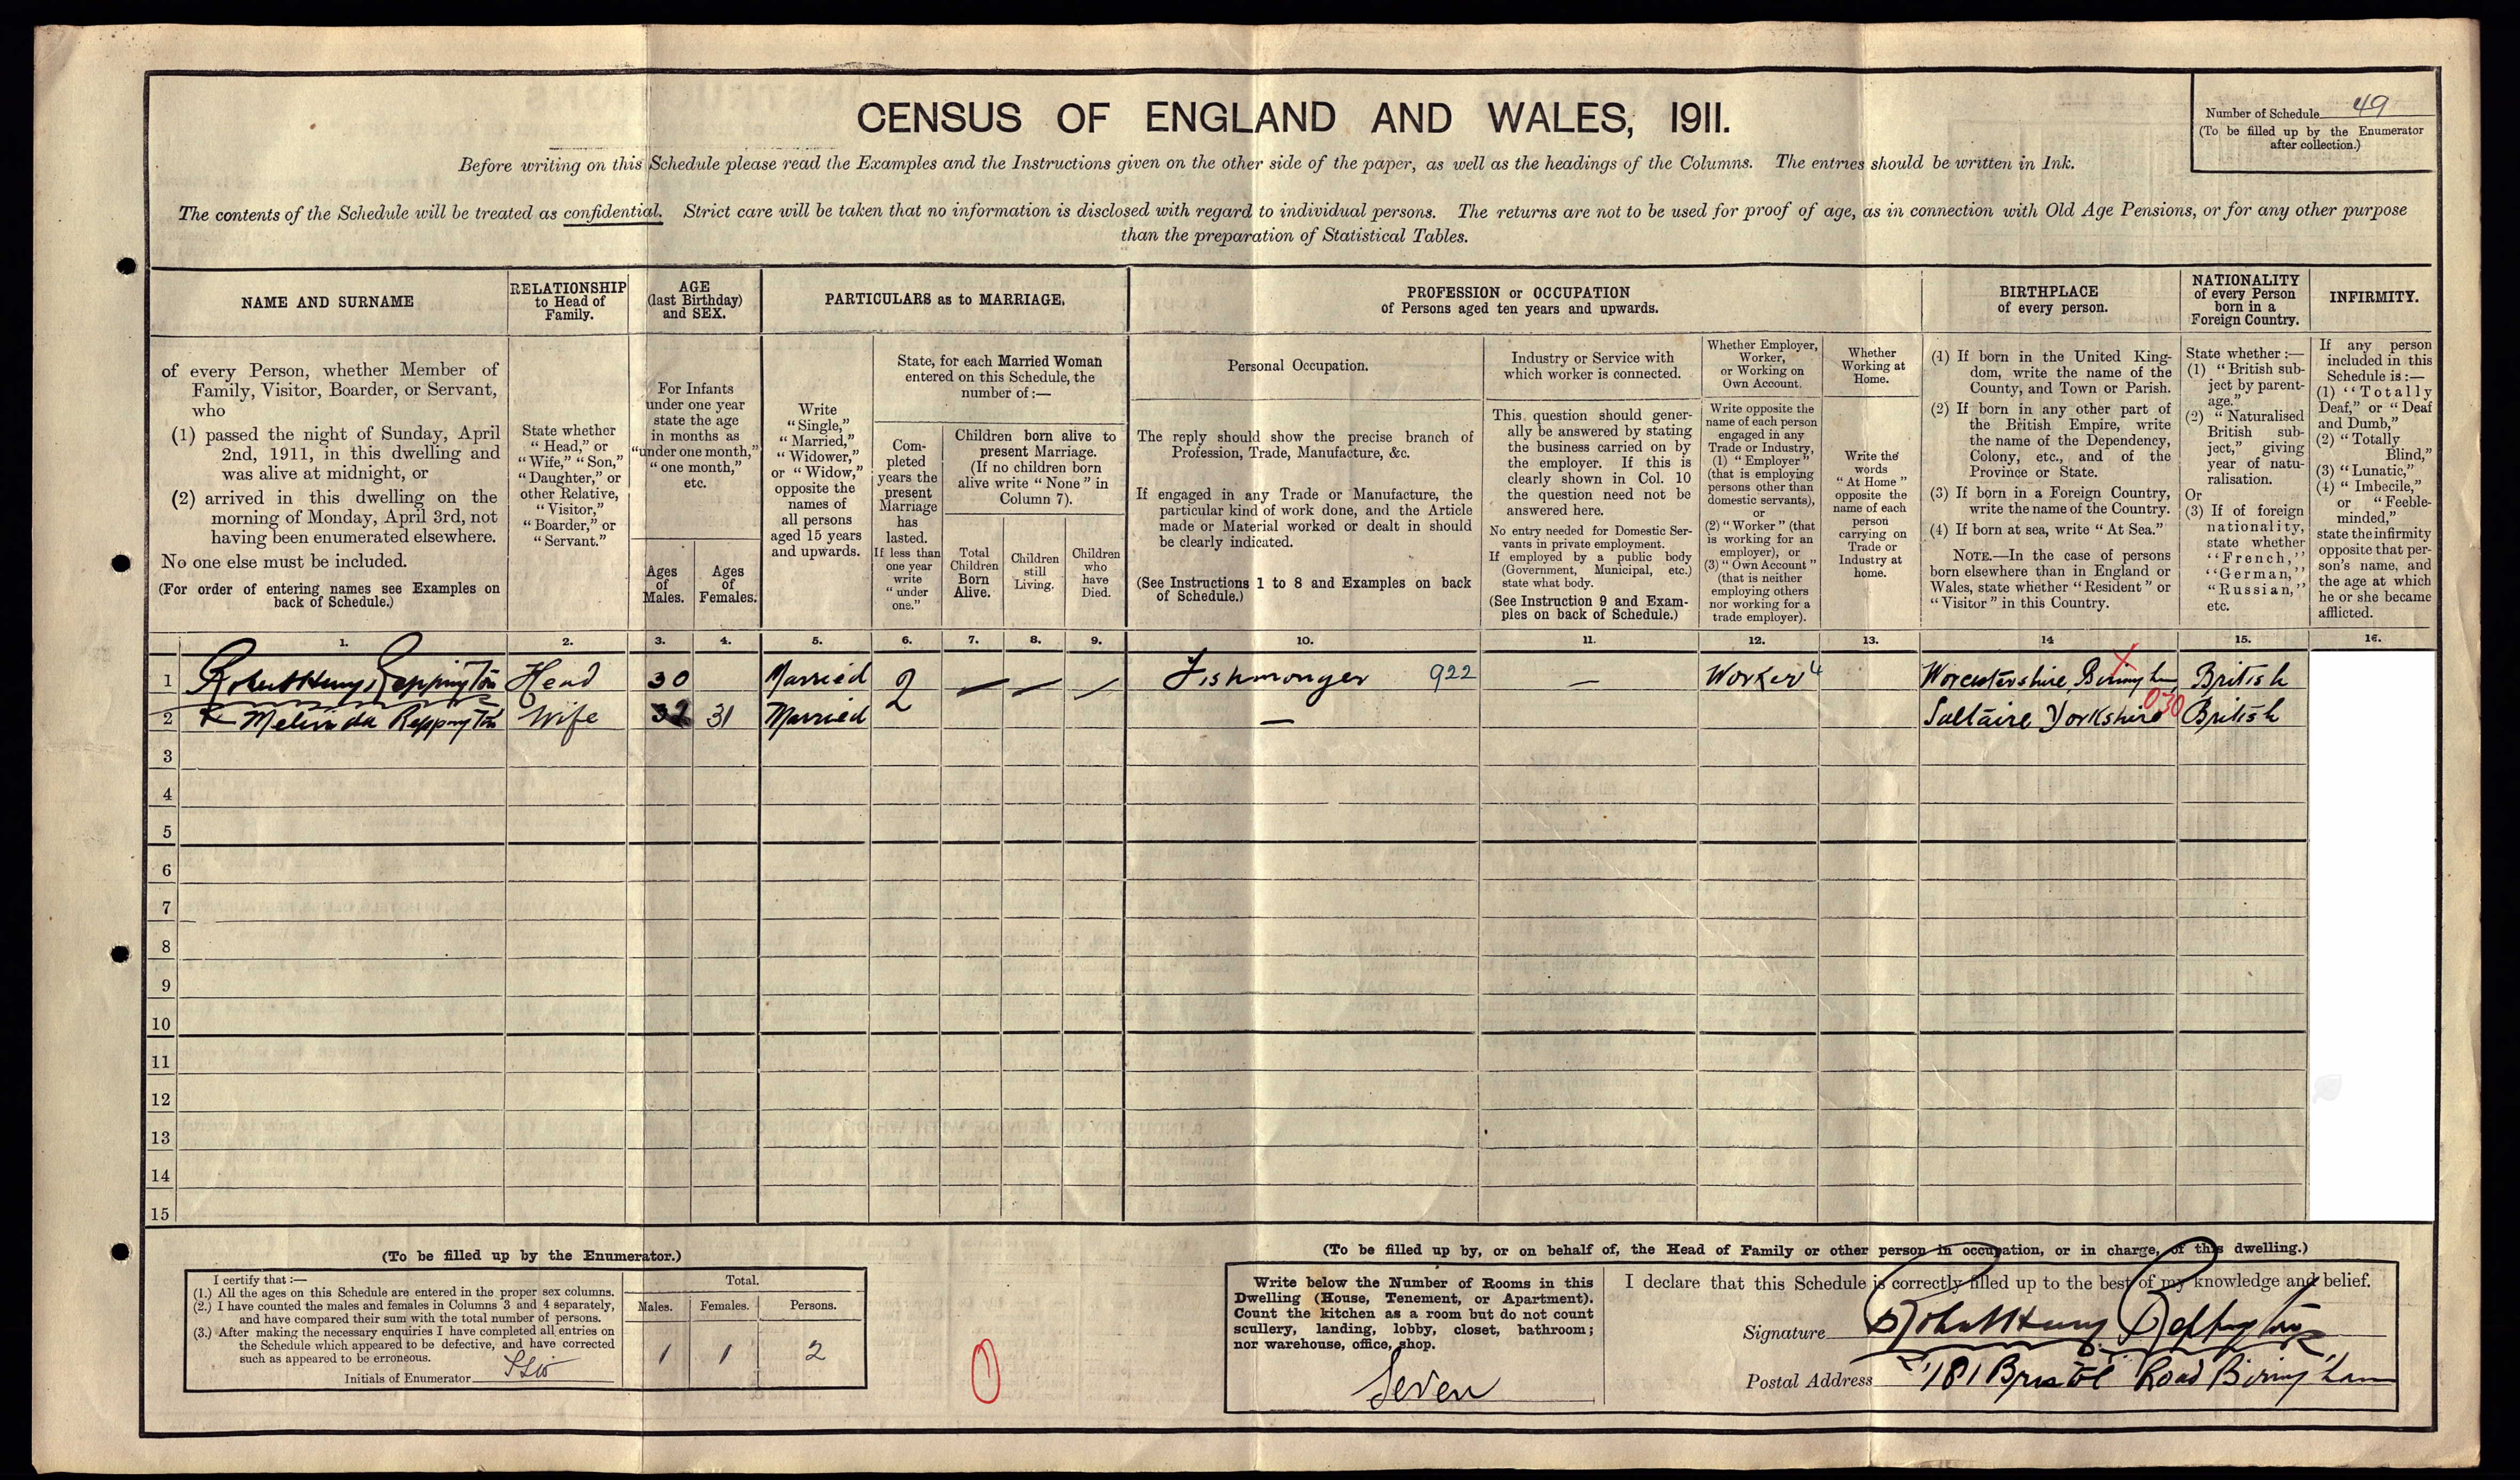 CENSUS OF ENGLAND AND WALES, 1911.
Number of Schedule 49
(To be filled up by the Enumerator
after collection.)
Before writing on this Schedule please read the Examples and the Instructions given on the other side of the paper, as well as the headings of the Columns. The entries should be written in Ink.
The contents of the Schedule will be treated as confidential. Strict care will be taken that no information is disclosed with regard to individual persons. The returns are not to be used for proof of age, as in connection with Old Age Pensions, or for any other purpose
than the preparation of Statistical Tables.
NAME AND SURNAME
of every Person, whether Member of
Family, Visitor, Boarder, or Servant,
who
(1) passed the night of Sunday, April
2nd, 1911, in this dwelling and
was alive at midnight, or
(2) arrived in this dwelling on the
morning of Monday, April 3rd, not
having been enumerated elsewhere.
No one else must be included.
(For order of entering names see Examples on
back of Schedule.)
RELATIONSHIP
to Head of
Family.
State whether
"Head," or
"Wife," "Son,"
"Daughter," or
other Relative,
"Visitor,"
"Boarder," or
"Servant."
AGE
(last Birthday)
and SEX.
For Infants
under one year
state the age
in months as
"under one month,"
"one month,"
etc.
Ages
of
Males.
Ages
of
Females.
PARTICULARS as to MARRIAGE.
Write
"Single,"
"Married,"
"Widower,"
or "Widow,"
opposite the
names of
all persons
aged 15 years
and upwards.
State, for each Married Woman
entered on this Schedule, the
number of:—
Com-
pleted
years the
present
Marriage
has
lasted.
If less than
one year
write
"under
one."
Children born alive to
present Marriage.
(If no children born
alive write "None" in
Column 7).
Total
Children
Born
Alive.
Children
still
Living.
Children
who
have
Died.
PROFESSION or OCCUPATION
of Persons aged ten years and upwards.
Personal Occupation.
The reply should show the precise branch of
Profession, Trade, Manufacture, &c.
If engaged in any Trade or Manufacture, the
particular kind of work done, and the Article
made or Material worked or dealt in should
be clearly indicated.
(See Instructions 1 to 8 and Examples on back
of Schedule.)
Industry or Service with
which worker is connected.
This question should gener-
ally be answered by stating
the business carried on by
the employer. If this is
clearly shown in Col. 10
the question need not be
answered here.
No entry needed for Domestic Ser-
vants in private employment.
If employed by a public body
(Government, Municipal, etc.)
state what body.
(See Instruction 9 and Exam-
ples on back of Schedule.)
Whether Employer,
Worker,
or Working on
Own Account.
Write opposite the
name of each person
engaged in any
Trade or Industry,
(1) "Employer"
(that is employing
persons other than
domestic servants),
or
(2) "Worker" (that
is working for an
employer), or
(3) "Own Account"
(that is neither
employing others
nor working for a
trade employer).
Whether
Working at
Home.
Write the
words
"At Home"
opposite the
name of each
person
carrying on
Trade or
Industry at
home.
BIRTHPLACE
of every person.
(1) If born in the United King-
dom, write the name of the
County, and Town or Parish.
(2) If born in any other part of
the British Empire, write
the name of the Dependency,
Colony, etc., and of the
Province or State.
(3) If born in a Foreign Country,
write the name of the Country.
(4) If born at sea, write "At Sea."
NOTE.—In the case of persons
born elsewhere than in England or
Wales, state whether "Resident" or
"Visitor" in this Country.
NATIONALITY
of every Person
born in a
Foreign Country.
State whether:—
(1) "British sub-
ject by parent-
age."
(2) "Naturalised
British sub-
ject," giving
year of natu-
ralisation.
Or
(3) If of foreign
nationality,
state whether
"French,"
"German,"
"Russian,"
etc.
INFIRMITY.
If any person
included in this
Schedule is:—
(1) "Totally
Deaf," or "Deaf
and Dumb,"
(2) "Totally
Blind,"
(3) "Lunatic,"
(4) "Imbecile,"
or "Feeble-
minded,"
state the infirmity
opposite that per-
son's name, and
the age at which
he or she became
afflicted.
1. 2. 3. 4. 5. 6. 7. 8. 9. 10. 11. 12. 13. 14 15. 16.
1 Robert Henry Reppington Head 30 Married 2 — — — Fishmonger 922 — Worker 4 Worcestershire, Birmingham British
2 Melinda Reppington Wife 32 31 Married — Saltaire Yorkshire 030 British
3
4
5
6
7
8
9
10
11
12
13
14
15
(To be filled up by the Enumerator.)
I certify that:—
(1.) All the ages on this Schedule are entered in the proper sex columns.
(2.) I have counted the males and females in Columns 3 and 4 separately,
and have compared their sum with the total number of persons.
(3.) After making the necessary enquiries I have completed all entries on
the Schedule which appeared to be defective, and have corrected
such as appeared to be erroneous.
Initials of Enumerator
Total.
Males. Females. Persons.
1 1 2
0
(To be filled up by, or on behalf of, the Head of Family or other person in occupation, or in charge, of this dwelling.)
Write below the Number of Rooms in this
Dwelling (House, Tenement, or Apartment).
Count the kitchen as a room but do not count
scullery, landing, lobby, closet, bathroom;
nor warehouse, office, shop.
Seven
I declare that this Schedule is correctly filled up to the best of my knowledge and belief.
Signature Robert Henry Reppington
Postal Address 181 Bristol Road Birmingham